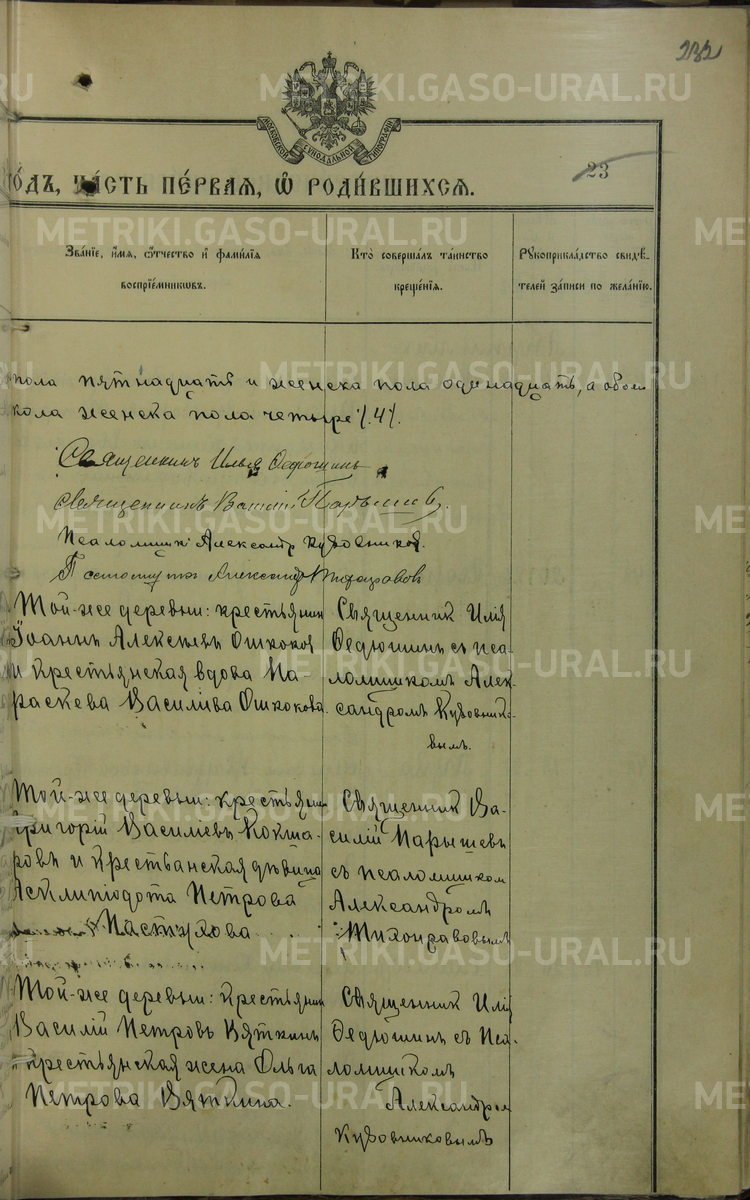 232
МОСКОВСКОЙ СѴНОДАЛЬНОЙ ТИПОГРАФІИ
23
ГО́ДЪ, ЧА́СТЬ ПЕ́РВАЯ, Ѽ РОДИ́ВШИХСЯ.
Зва́нїе, и҆́мя, ѻ҆́тчество и҆ фами́лїя воспрїе́мникѡвъ.
Кто̀ соверша́лъ та́инство креще́нїя.
Рукоприкла́дство свидѣ́телей за́писи по жела́нїю.
пола пятнадцать и женска пола одинадцать, а обоего
пола женска пола четыре /.4/.
Священникъ Илья Федюшинъ
священникъ Василій Парышевъ.
Псаломщикъ Александр Кузовников.
Псаломщикъ Александръ Тихонравовъ
Той-же деревни: крестьянин
Іоаннъ Алексѣевъ Ошкоков
и крестьянская вдова Па-
раскева Василіева Ошкокова.
Священник Илія
Федюшинъ съ пса-
ломщиком Алек-
сандромъ Кузовнико-
вымъ.
Той-же деревни: крестьянин
Григорій Василіевъ Кокша-
ровъ и крестьянская дѣвица
Асклипіодота Петрова
Пастухова
Священник Ва-
силій Парышевъ
съ псаломщиком
Александромъ
Тихонравовымъ
Той-же деревни: крестьянин
Василій Петровъ Вяткинъ
и крестьянская жена Ольга
Петрова Вяткина.
Священник Илія
Федюшинъ съ Пса-
ломщикомъ
Александром
Кузовниковымъ
METRIKI.GASO-URAL.RU